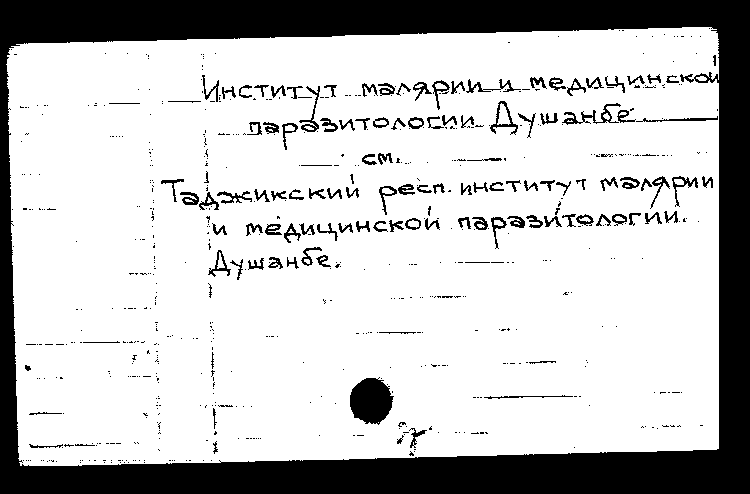 Институт малярии и медицинской
паразитологии Душанбе.
см.
Таджикский респ. институт малярии
и медицинской паразитологии.
Душанбе.